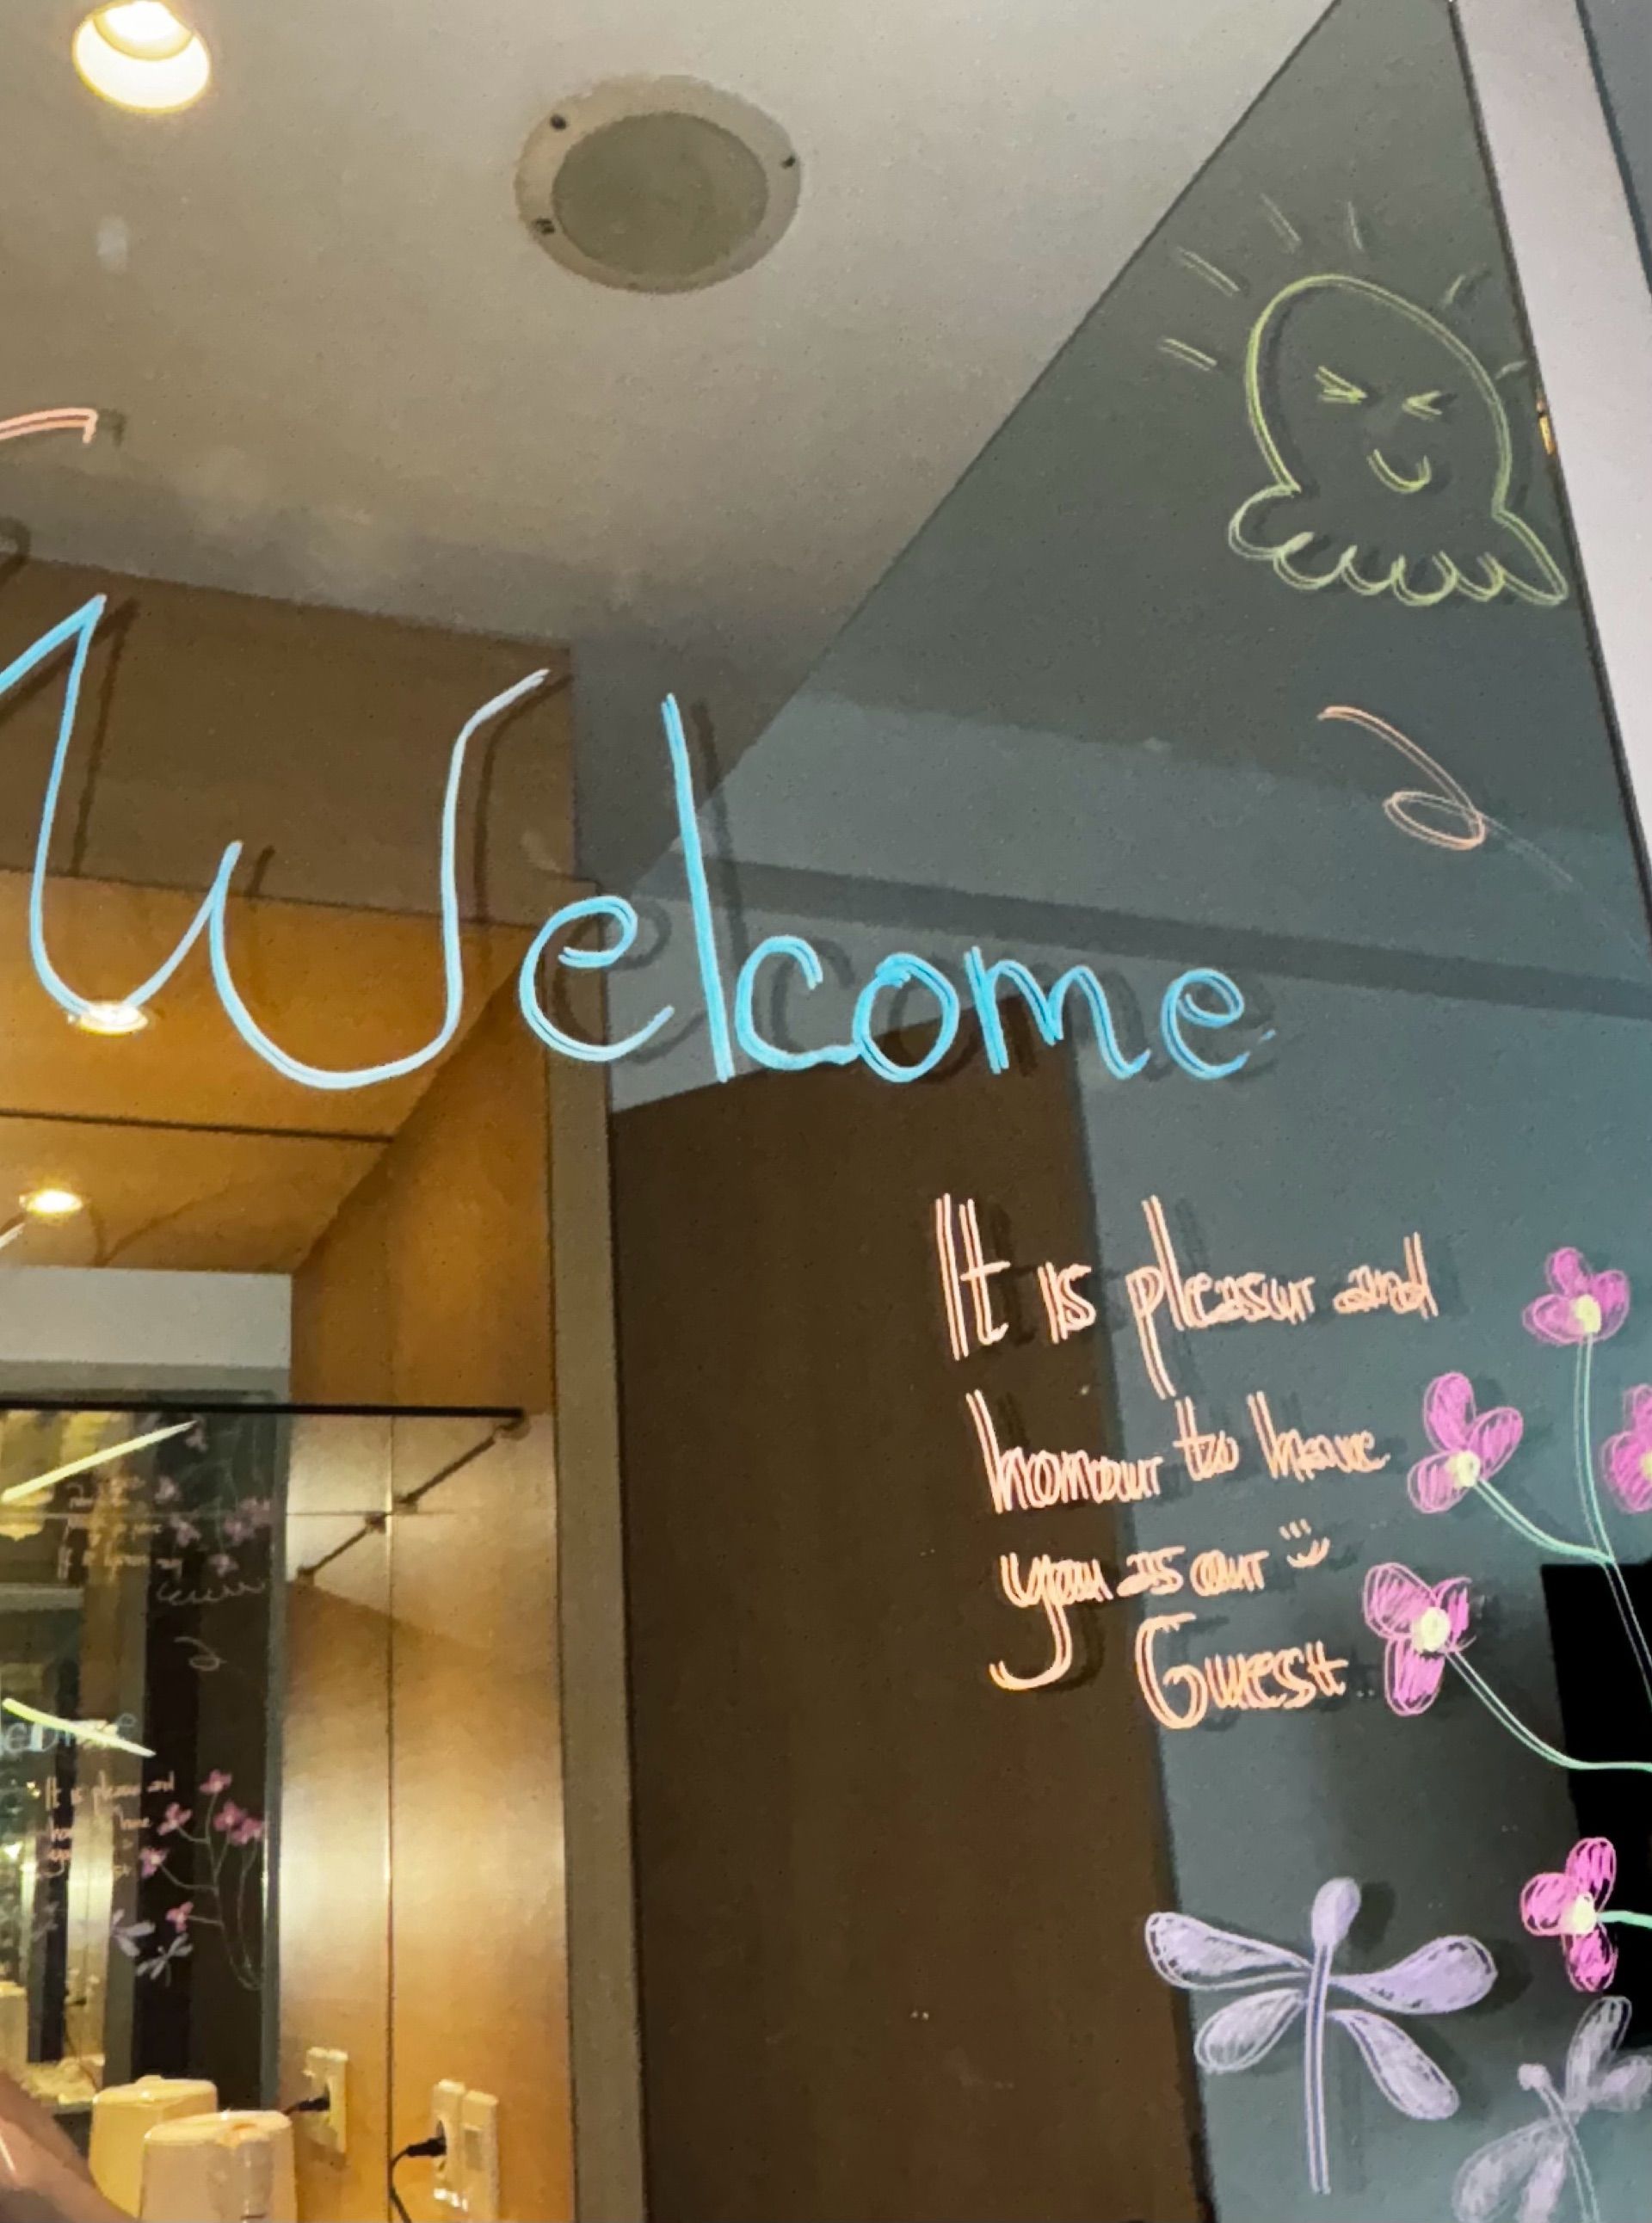 Welcome
It is pleasur and
honour to have
you as our
Guest